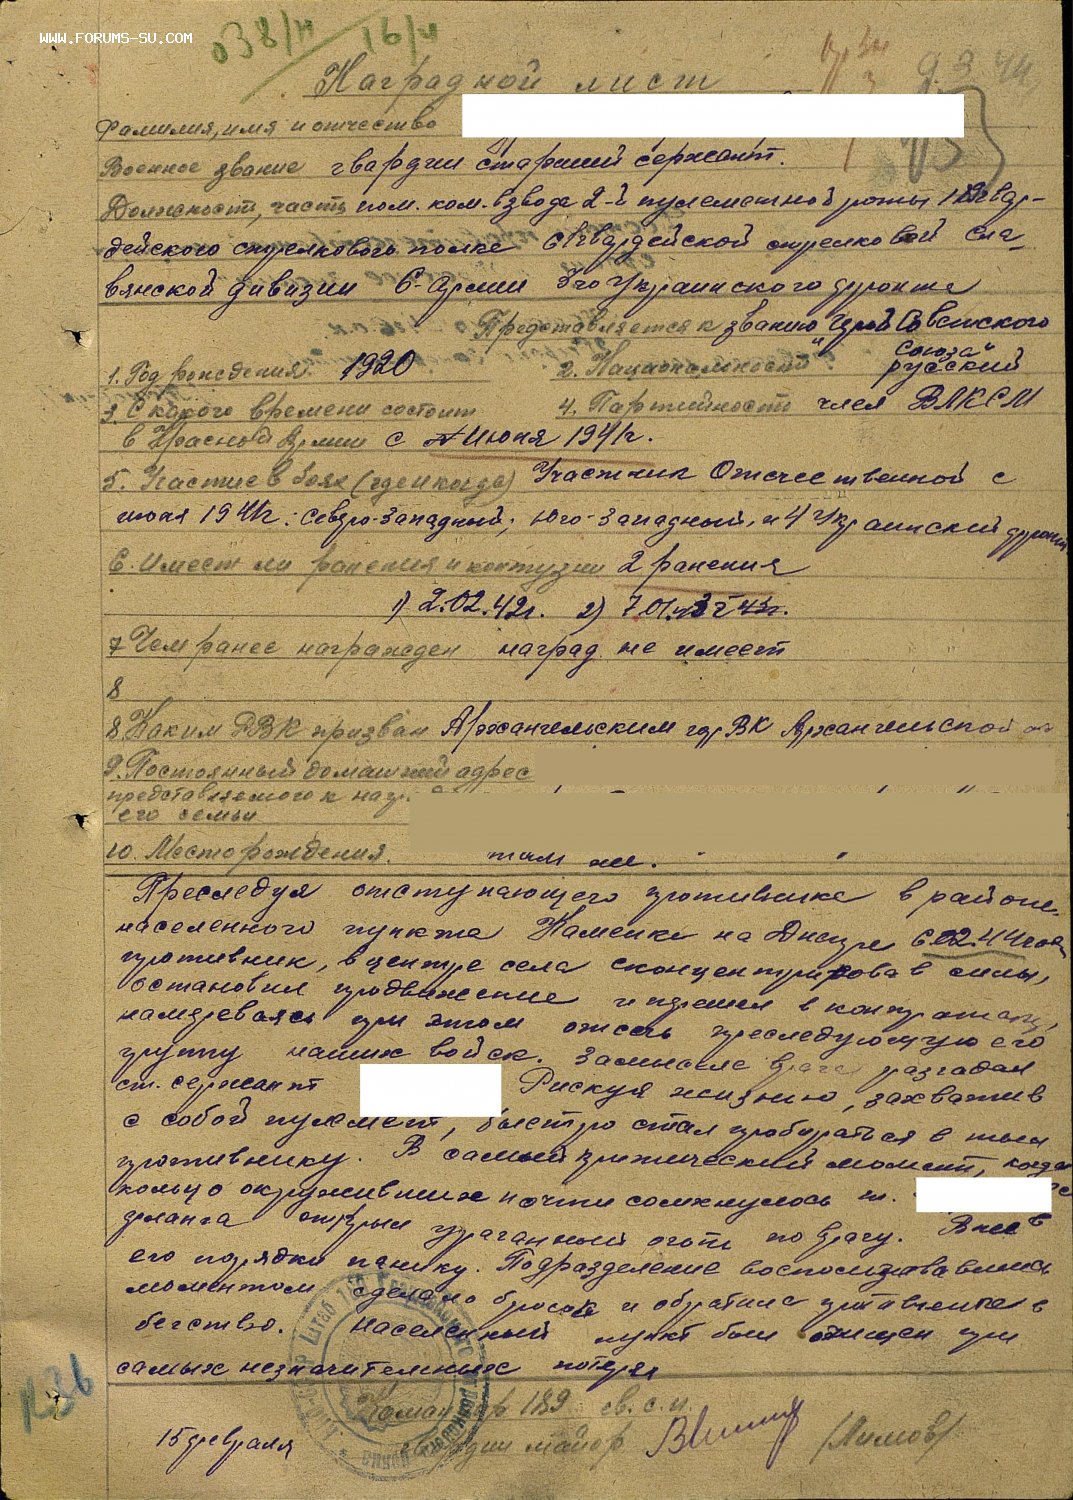 WWW.FORUMS-SU.COM
038/н 16/н
Наградной лист
Фамилия, имя и отчество
Военное звание гвардии старший сержант.
Должность, часть пом. ком. взвода 2-й пулеметной роты гвар-
дейского стрелкового полка гвардейской стрелковой сла-
вянской дивизии 6-Армии 3го Украинского фронта
Представляется к званию "Герой Советского
Союза"
1. Год рождения 1920 2. Национальность русский
3. С какого времени состоит 4. Партийность член ВЛКСМ
в Красной Армии с июня 1941г.
5. Участие в боях (где и когда) Участник Отечественной с
июня 1941г: Северо-Западный, Юго-Западный, и 4 Украинский фронт
6. Имеет ли ранения и контузии 2 ранения
1) 2.02.42г. 2)
7 Чем ранее награжден наград не имеет
8
8 Каким РВК призван Архангельским гор ВК Архангельской
9. Постоянный домашний адрес
представляемого к
его семьи
10. Место рождения. там же.
Преследуя отступающего противника в районе
населенного пункта Каменка на Днепре 6.02.44 года
противник, в центре села сконцентрировав силы,
остановил продвижение и перешел в контратаку,
намереваясь при этом отсечь преследующую его
группу наших войск. Замысел врага разгадал
ст. сержант Рискуя жизнью, захватив
с собой пулемет, быстро стал пробираться в тыл
противнику. В самый критический момент, когда
кольцо окруживших почти сомкнулось т.
фланга открыл ураганный огонь по врагу. Внес в
его порядки панику. Подразделение воспользовавшись
моментом сделало бросок и обратило противника в
бегство. Населенный пункт был очищен при
самых незначительных потерях
Командир 189 гв. с. п.
15 февраля гвардии майор /Лимов/